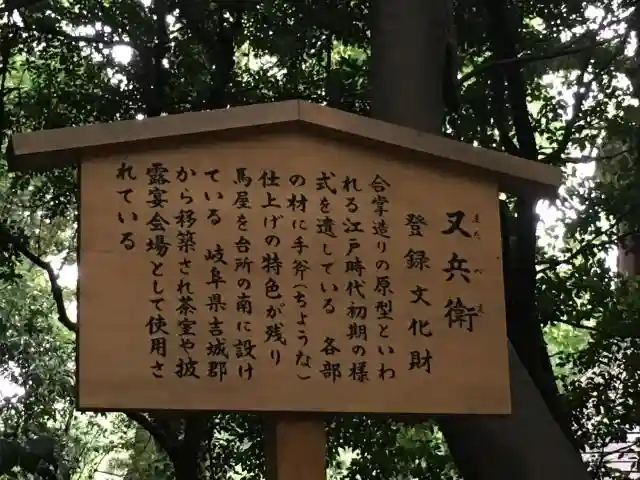 又兵衛
またべゑ
登録文化財
合掌造りの原型といわ
れる江戸時代初期の様
式を遺している 各部
の材に手斧(ちような)
仕上げの特色が残り
馬屋を台所の南に設け
ている 岐阜県吉城郡
から移築され茶室や披
露宴会場として使用さ
れている